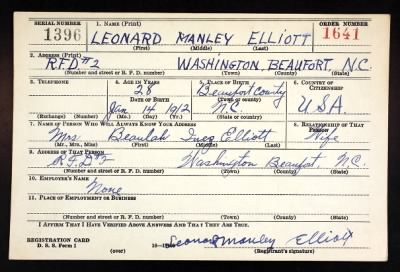 SERIAL NUMBER 1. NAME (Print) ORDER NUMBER
1396 LEONARD MANLEY ELLIOTT 1641
(First) (Middle) (Last)
2. ADDRESS (Print)
R.F.D #2 WASHINGTON, BEAUFORT, N.C.
(Number and street or R. F. D. number) (Town) (County) (State)
3. TELEPHONE 4. AGE IN YEARS 5. PLACE OF BIRTH 6. COUNTRY OF CITIZENSHIP
28 Beaufort County
DATE OF BIRTH (Town or county)
Jan 14 1912 N.C. U.S.A.
(Exchange) (Number) (Mo.) (Day) (Yr.) (State or country)
7. NAME OF PERSON WHO WILL ALWAYS KNOW YOUR ADDRESS 8. RELATIONSHIP OF THAT PERSON
Mrs. Beaulah Inez Elliott Wife
(Mr., Mrs., Miss) (First) (Middle) (Last)
9. ADDRESS OF THAT PERSON
Washington Beaufort, N.C.
(Number and street or R. F. D. number) (Town) (County) (State)
10. EMPLOYER'S NAME
None
11. PLACE OF EMPLOYMENT OR BUSINESS
(Number and street or R. F. D. number) (Town) (County) (State)
I AFFIRM THAT I HAVE VERIFIED ABOVE ANSWERS AND THAT THEY ARE TRUE.
REGISTRATION CARD
D. S. S. Form 1 Leonard Manley Elliott
(over) (Registrant's signature)